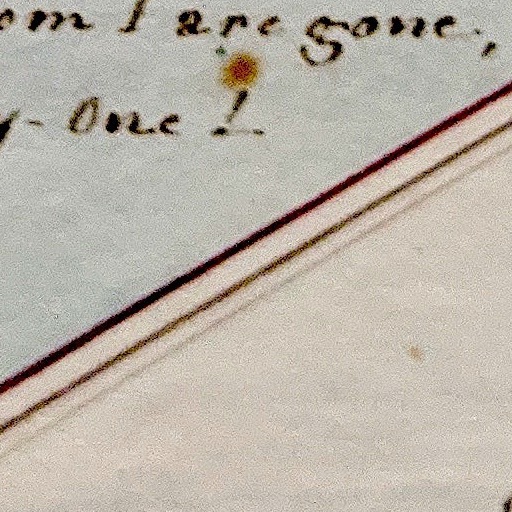 om I are gone,
y-One!